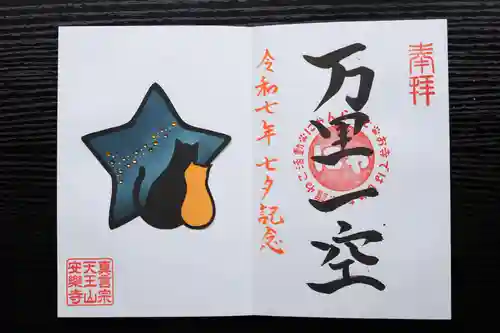 奉拝
万里一空
令和七年 七夕記念
真言宗
天王山
安樂寺